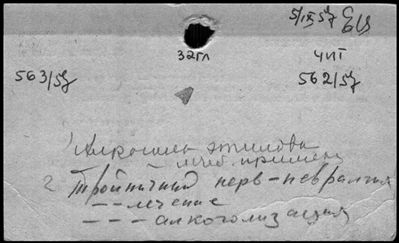 5/IX 57
32гл чит
563/57 562/57
Алкоголь этиловый
леч. примен.
2 Тройничный нерв-невралгия
-- лечение
--- алкоголизация